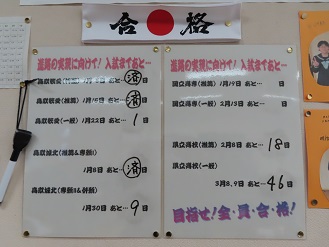 合格
進路の実現に向けて! 入試まであと…
鳥取敬愛(推薦) 1月 日 あと…済日
鳥取敬愛(専願)1月16日 あと…済日
鳥取敬愛(一般)1月22日 あと…1日
鳥取城北(推薦&専願Ⅰ)
1月8日 あと…済日
鳥取城北(専願Ⅱ&併願)
1月30日 あと…9日
進路の実現に向けて! 入試まであと…
国立高専(推薦) 1月19日 あと… 日
国立高専(一般) 2月15日 あと… 日
県立高校(推薦) 2月8日 あと…18日
県立高校(一般)
3月8,9日 あと…46日
目指せ!全・員・合・格!